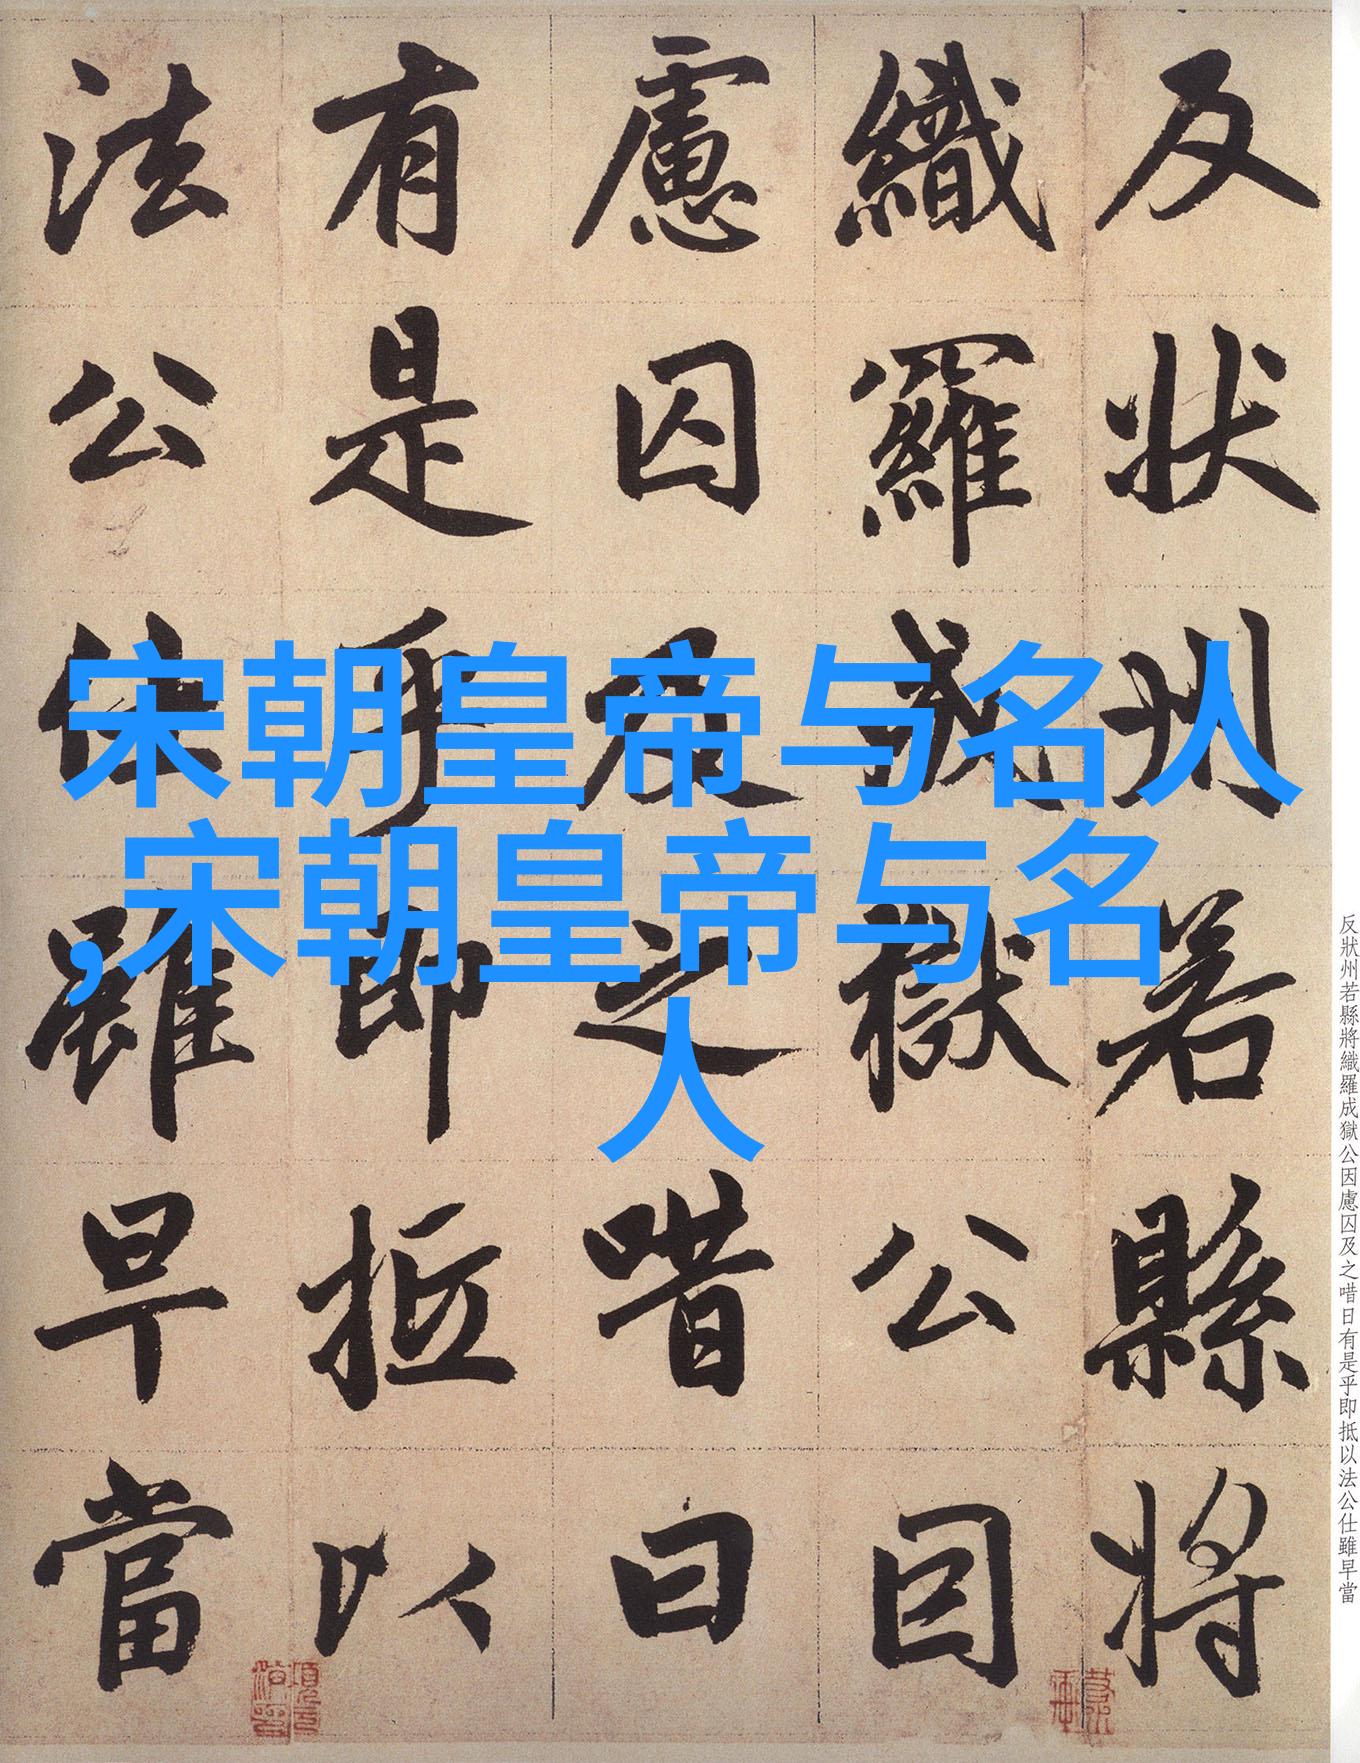 宋朝皇帝与名人
,宋朝皇帝与名
人
反狀州若縣將
織羅成獄公因
慮囚及之唶曰
有是乎即抵以
法公仕雖早當
反狀州若縣將織羅成獄公因慮囚及之唶日有是乎即抵以法公仕雖早當